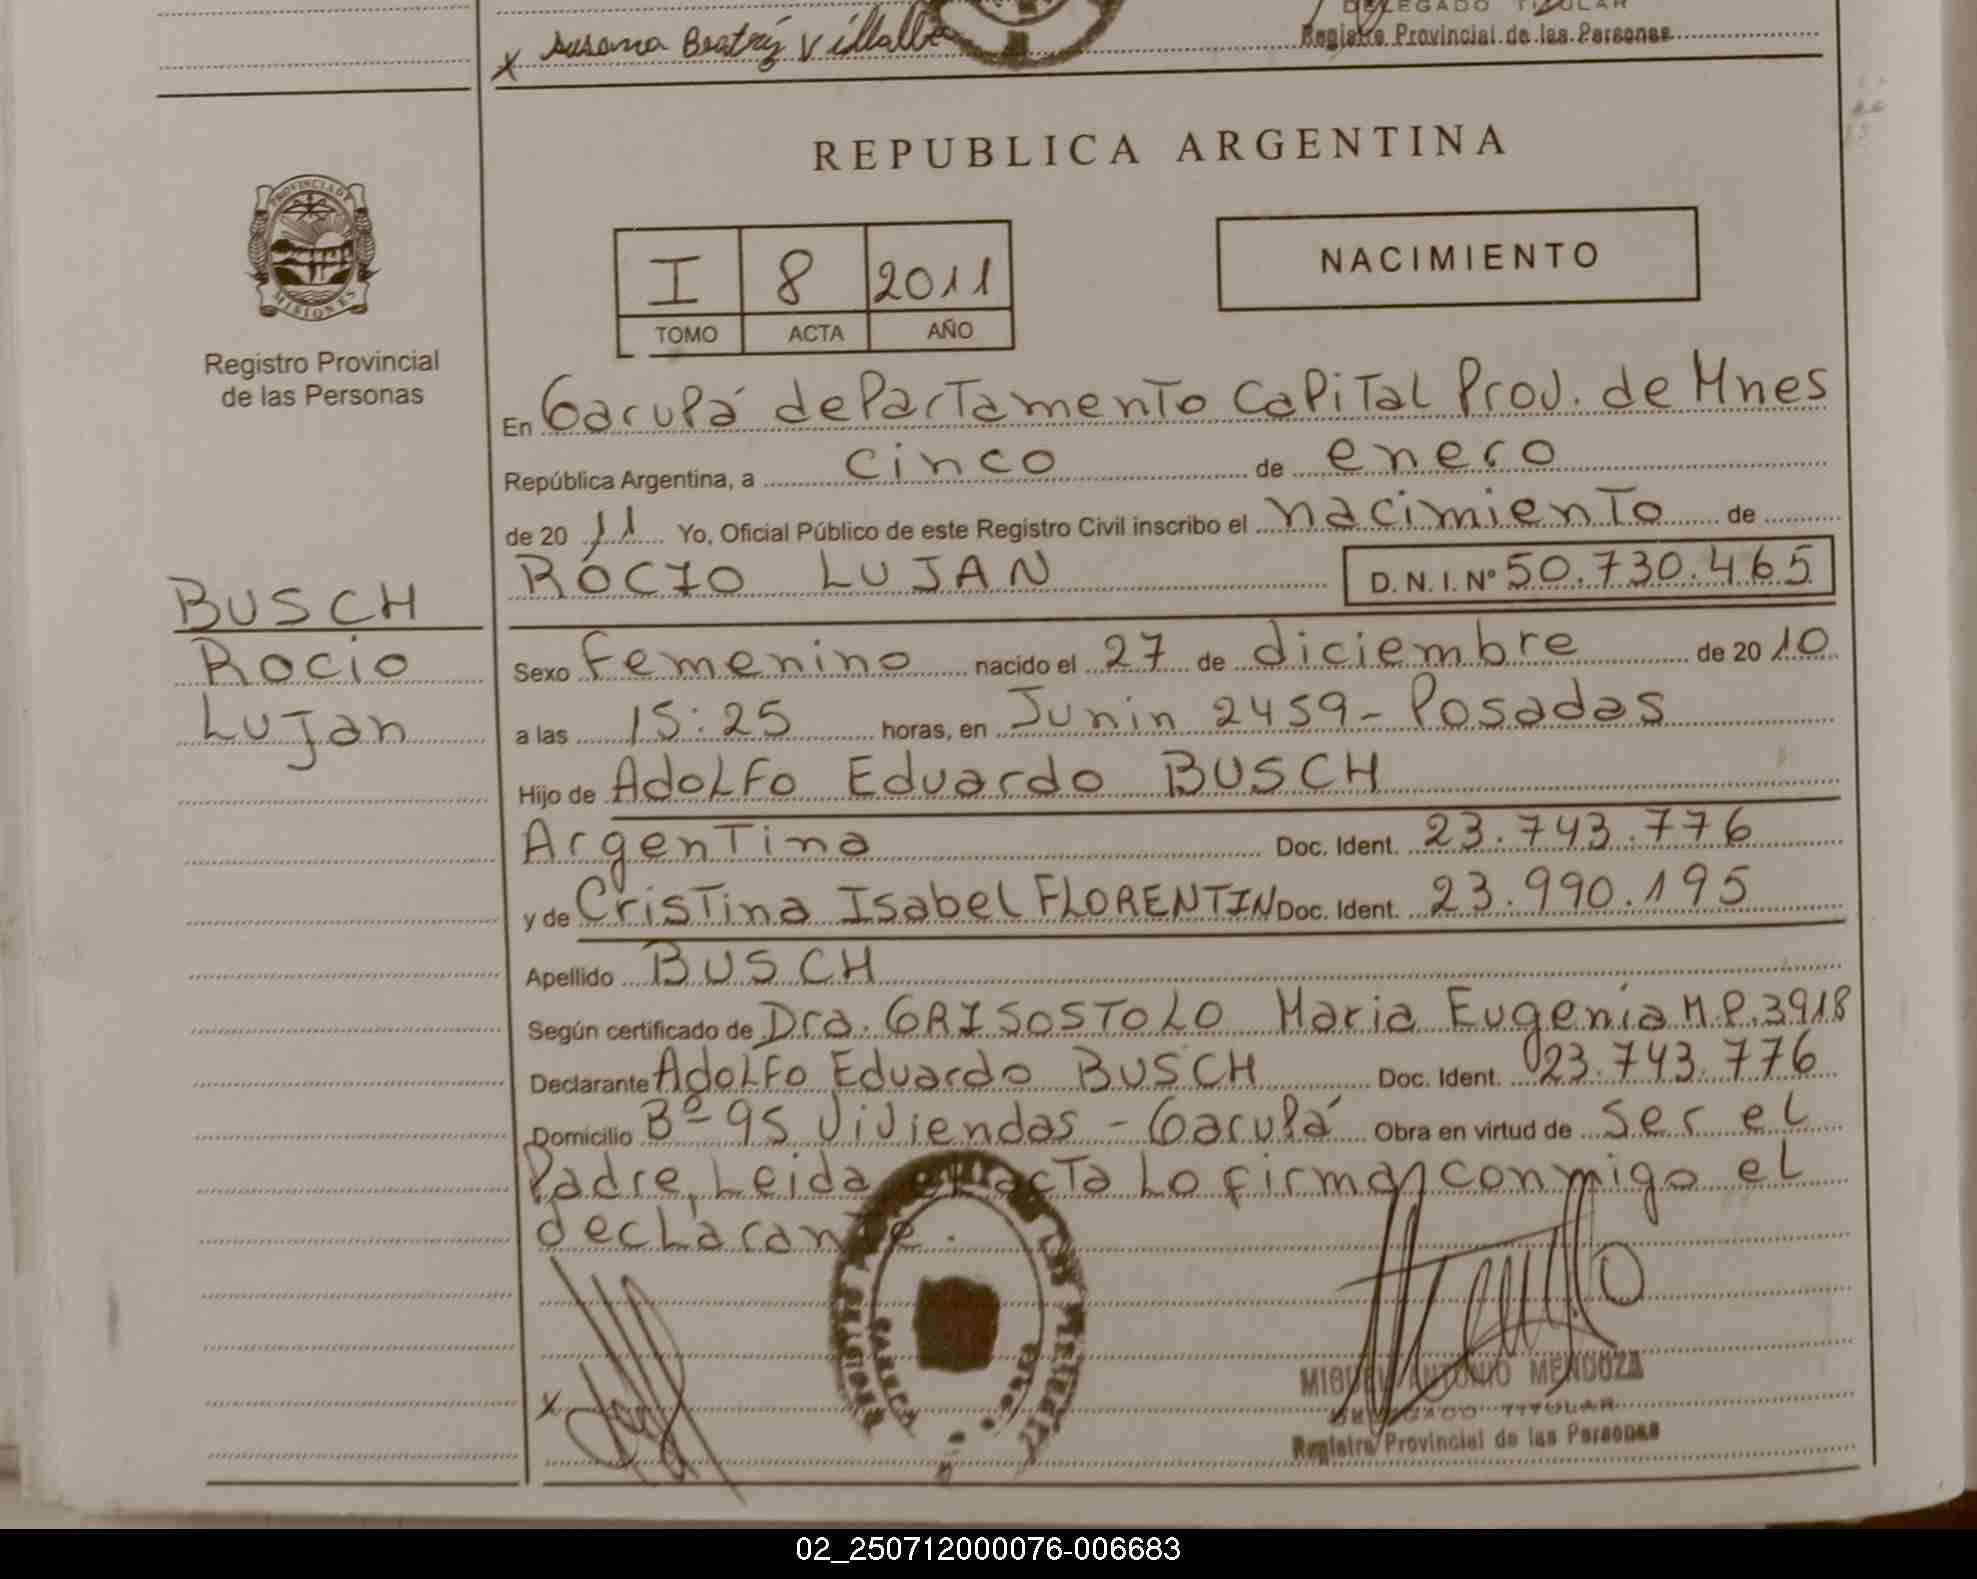 DELEGADO TITULAR
x Susana Beatriz Villalba
Registro Provincial de las Personas
REPUBLICA ARGENTINA
PROVINCIA DE
MISIONES
I 8 2011
TOMO ACTA AÑO
NACIMIENTO
Registro Provincial
de las Personas
En Garupá departamento Capital Prov. de Mnes
República Argentina, a cinco de enero
de 2011 Yo, Oficial Público de este Registro Civil inscribo el nacimiento de
ROCIO LUJAN D.N.I. Nº 50.730.465
BUSCH
Rocio
Lujan
Sexo Femenino nacido el 27 de diciembre de 2010
a las 15:25 horas, en Junin 2459 - Posadas
Hijo de Adolfo Eduardo BUSCH
Argentina Doc. Ident. 23.743.776
y de Cristina Isabel FLORENTIN Doc. Ident. 23.990.195
Apellido BUSCH
Según certificado de Dra. GRISOSTOLO Maria Eugenia M.P. 3918
Declarante Adolfo Eduardo BUSCH Doc. Ident. 23.743.776
Domicilio Bº 95 Viviendas - Garupá Obra en virtud de ser el
Padre, Leida el acta lo firman conmigo el
declarante.
x
MIGUEL ANTONIO MENDOZA
DELEGADO TITULAR
Registro Provincial de las Personas
02_250712000076-006683